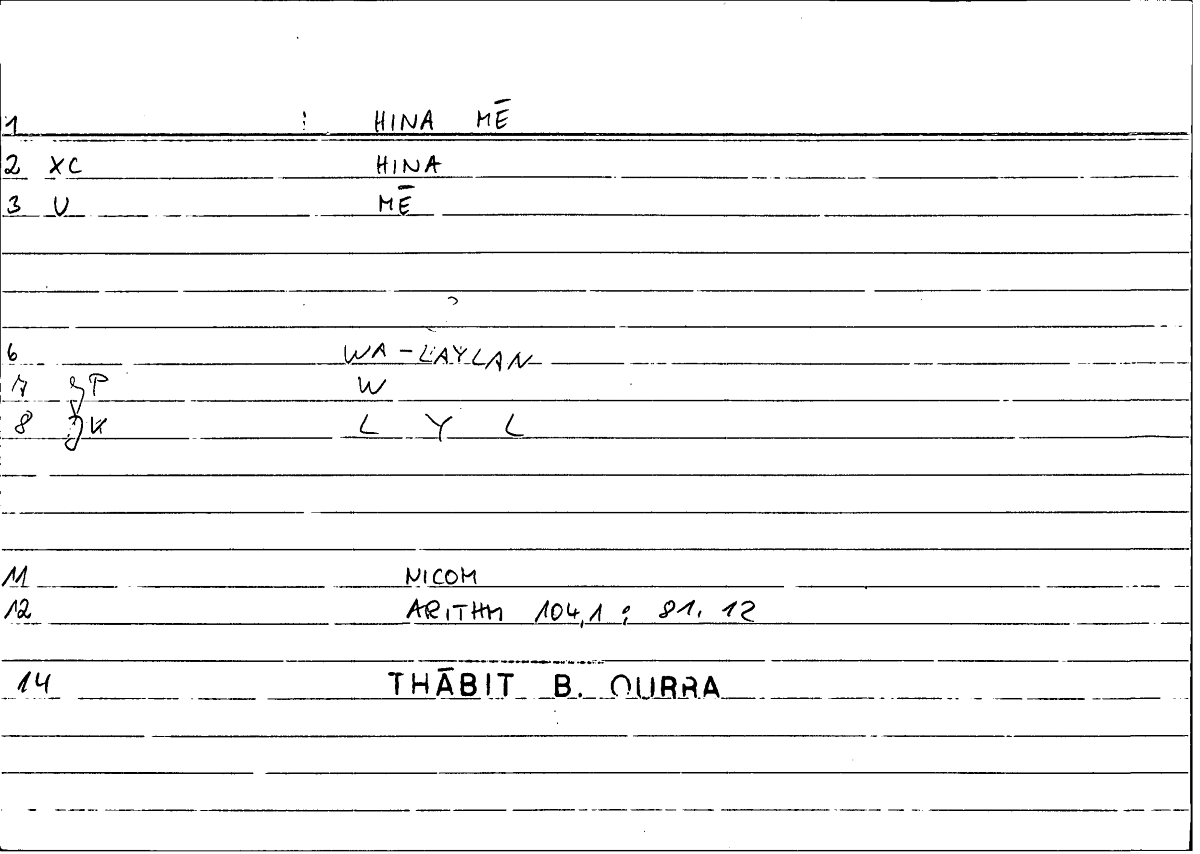 1 : HINA MĒ
2 XC HINA
3 U MĒ
6 WA-LAYLAN
7 P W
8 K L Y L
11 NICOM
12 ARITHM 104,1 ; 81. 12
14 THĀBIT B. QURRA